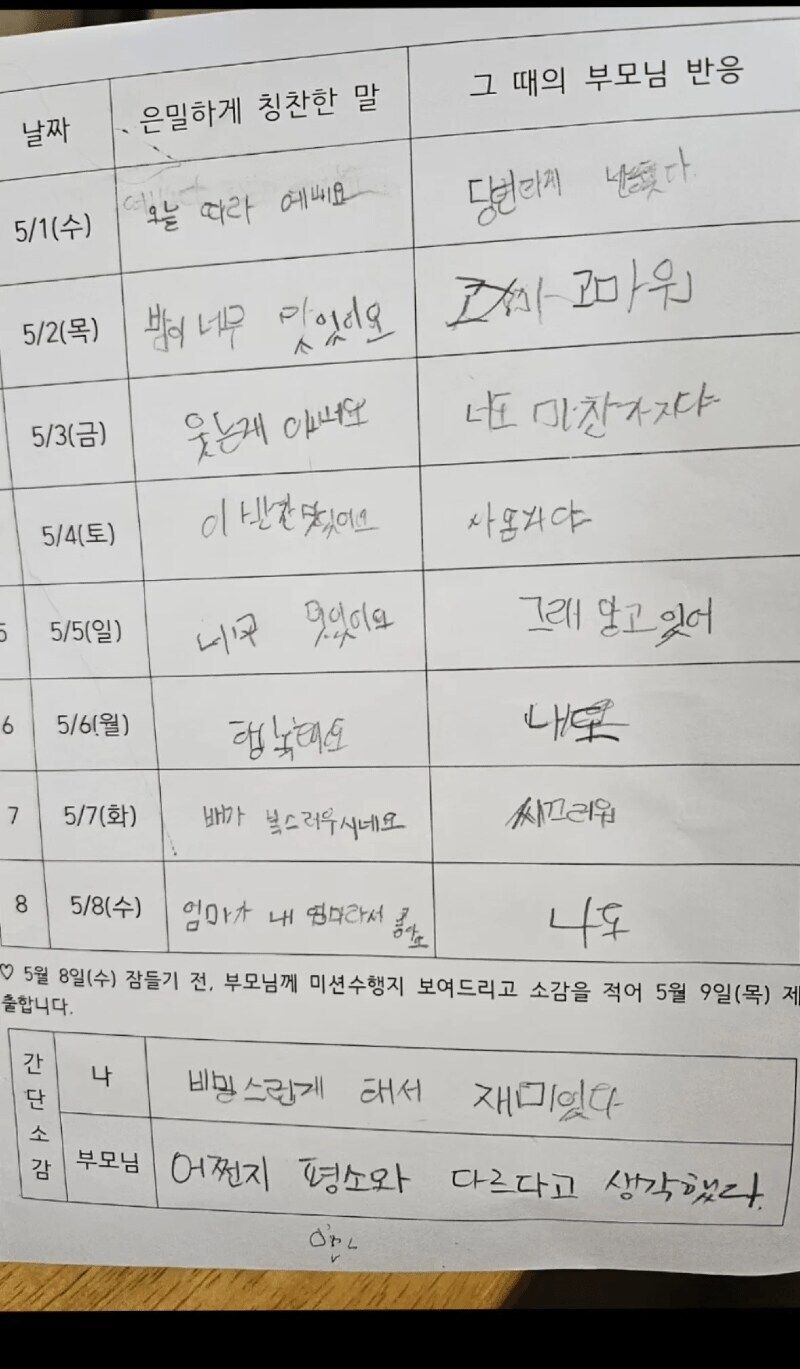 날짜 은밀하게 칭찬한 말 그 때의 부모님 반응
5/1(수) 오늘 따라 예뻐요 당번하게
5/2(목) 밥이 너무 맛있어요 고마워
5/3(금) 웃는게 너도 마찬가지다
5/4(토) 이 반찬 맛있어요
5 5/5(일) 그래 알고 잇어
6 5/6(월) 행복해요
7 5/7(화) 배가 복스러우시네요 씨끄러워
8 5/8(수) 엄마가 내 엄마라서 좋아요 나도
♡ 5월 8일(수) 잠들기 전, 부모님께 미션수행지 보여드리고 소감을 적어 5월 9일(목) 제
출합니다.
간단소감
나 비밀스럽게 해서 재미있다
부모님 어쩐지 평소와 다르다고 생각했다.